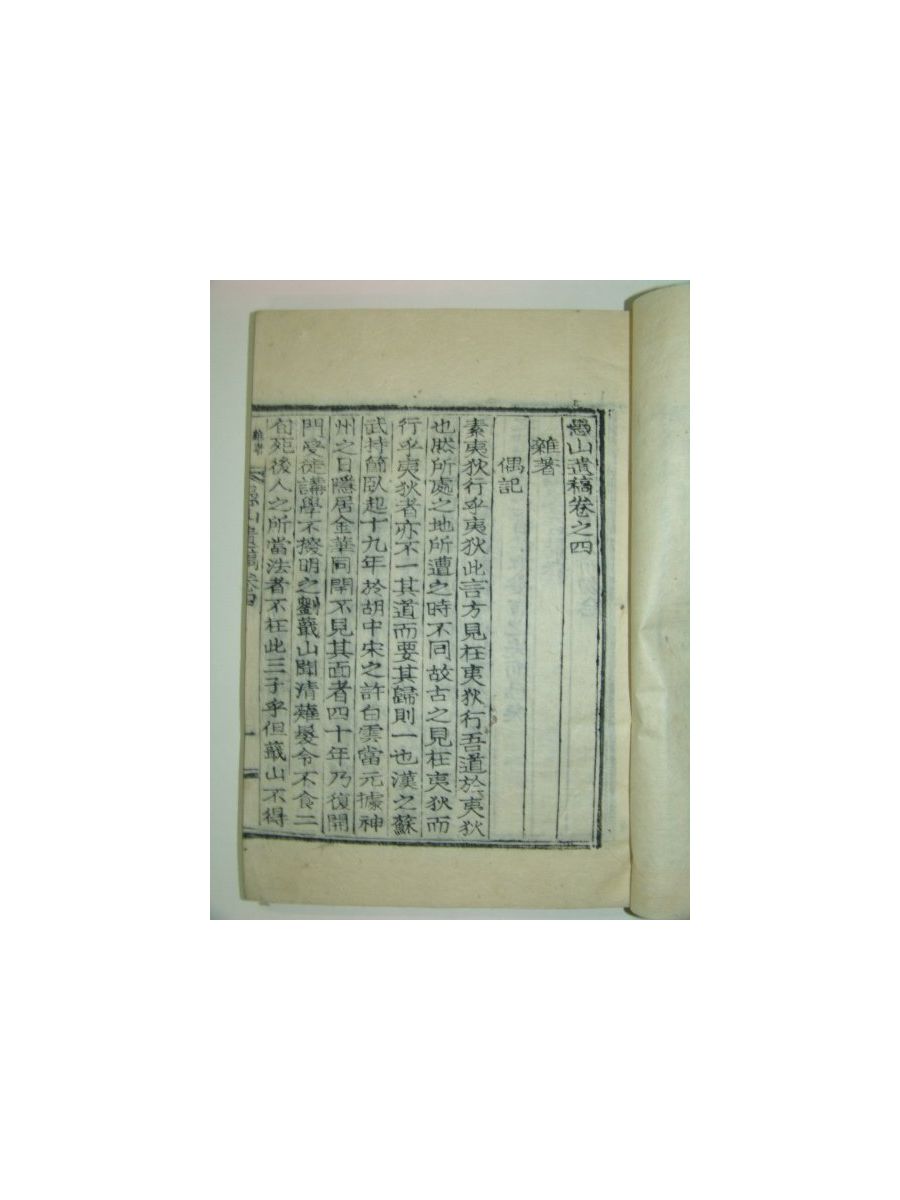 愚山遺稿卷之四
雜著
偶記
素夷狄行乎夷狄此言方見在夷狄行吾道於夷狄
也然所處之地所遭之時不同故古之見在夷狄而
行乎夷狄者亦不一其道而要其歸則一也漢之蘇
武持節臥起十九年於胡中宋之許白雲當元據神
州之日隱居金華同閈不見其面者四十年乃復開
門受徒講學不撓明之劉蕺山聞清薙髮令不食二
旬死後人之所當法者不在此三子乎但蕺山不得
雜著 愚山遺稿卷四 一